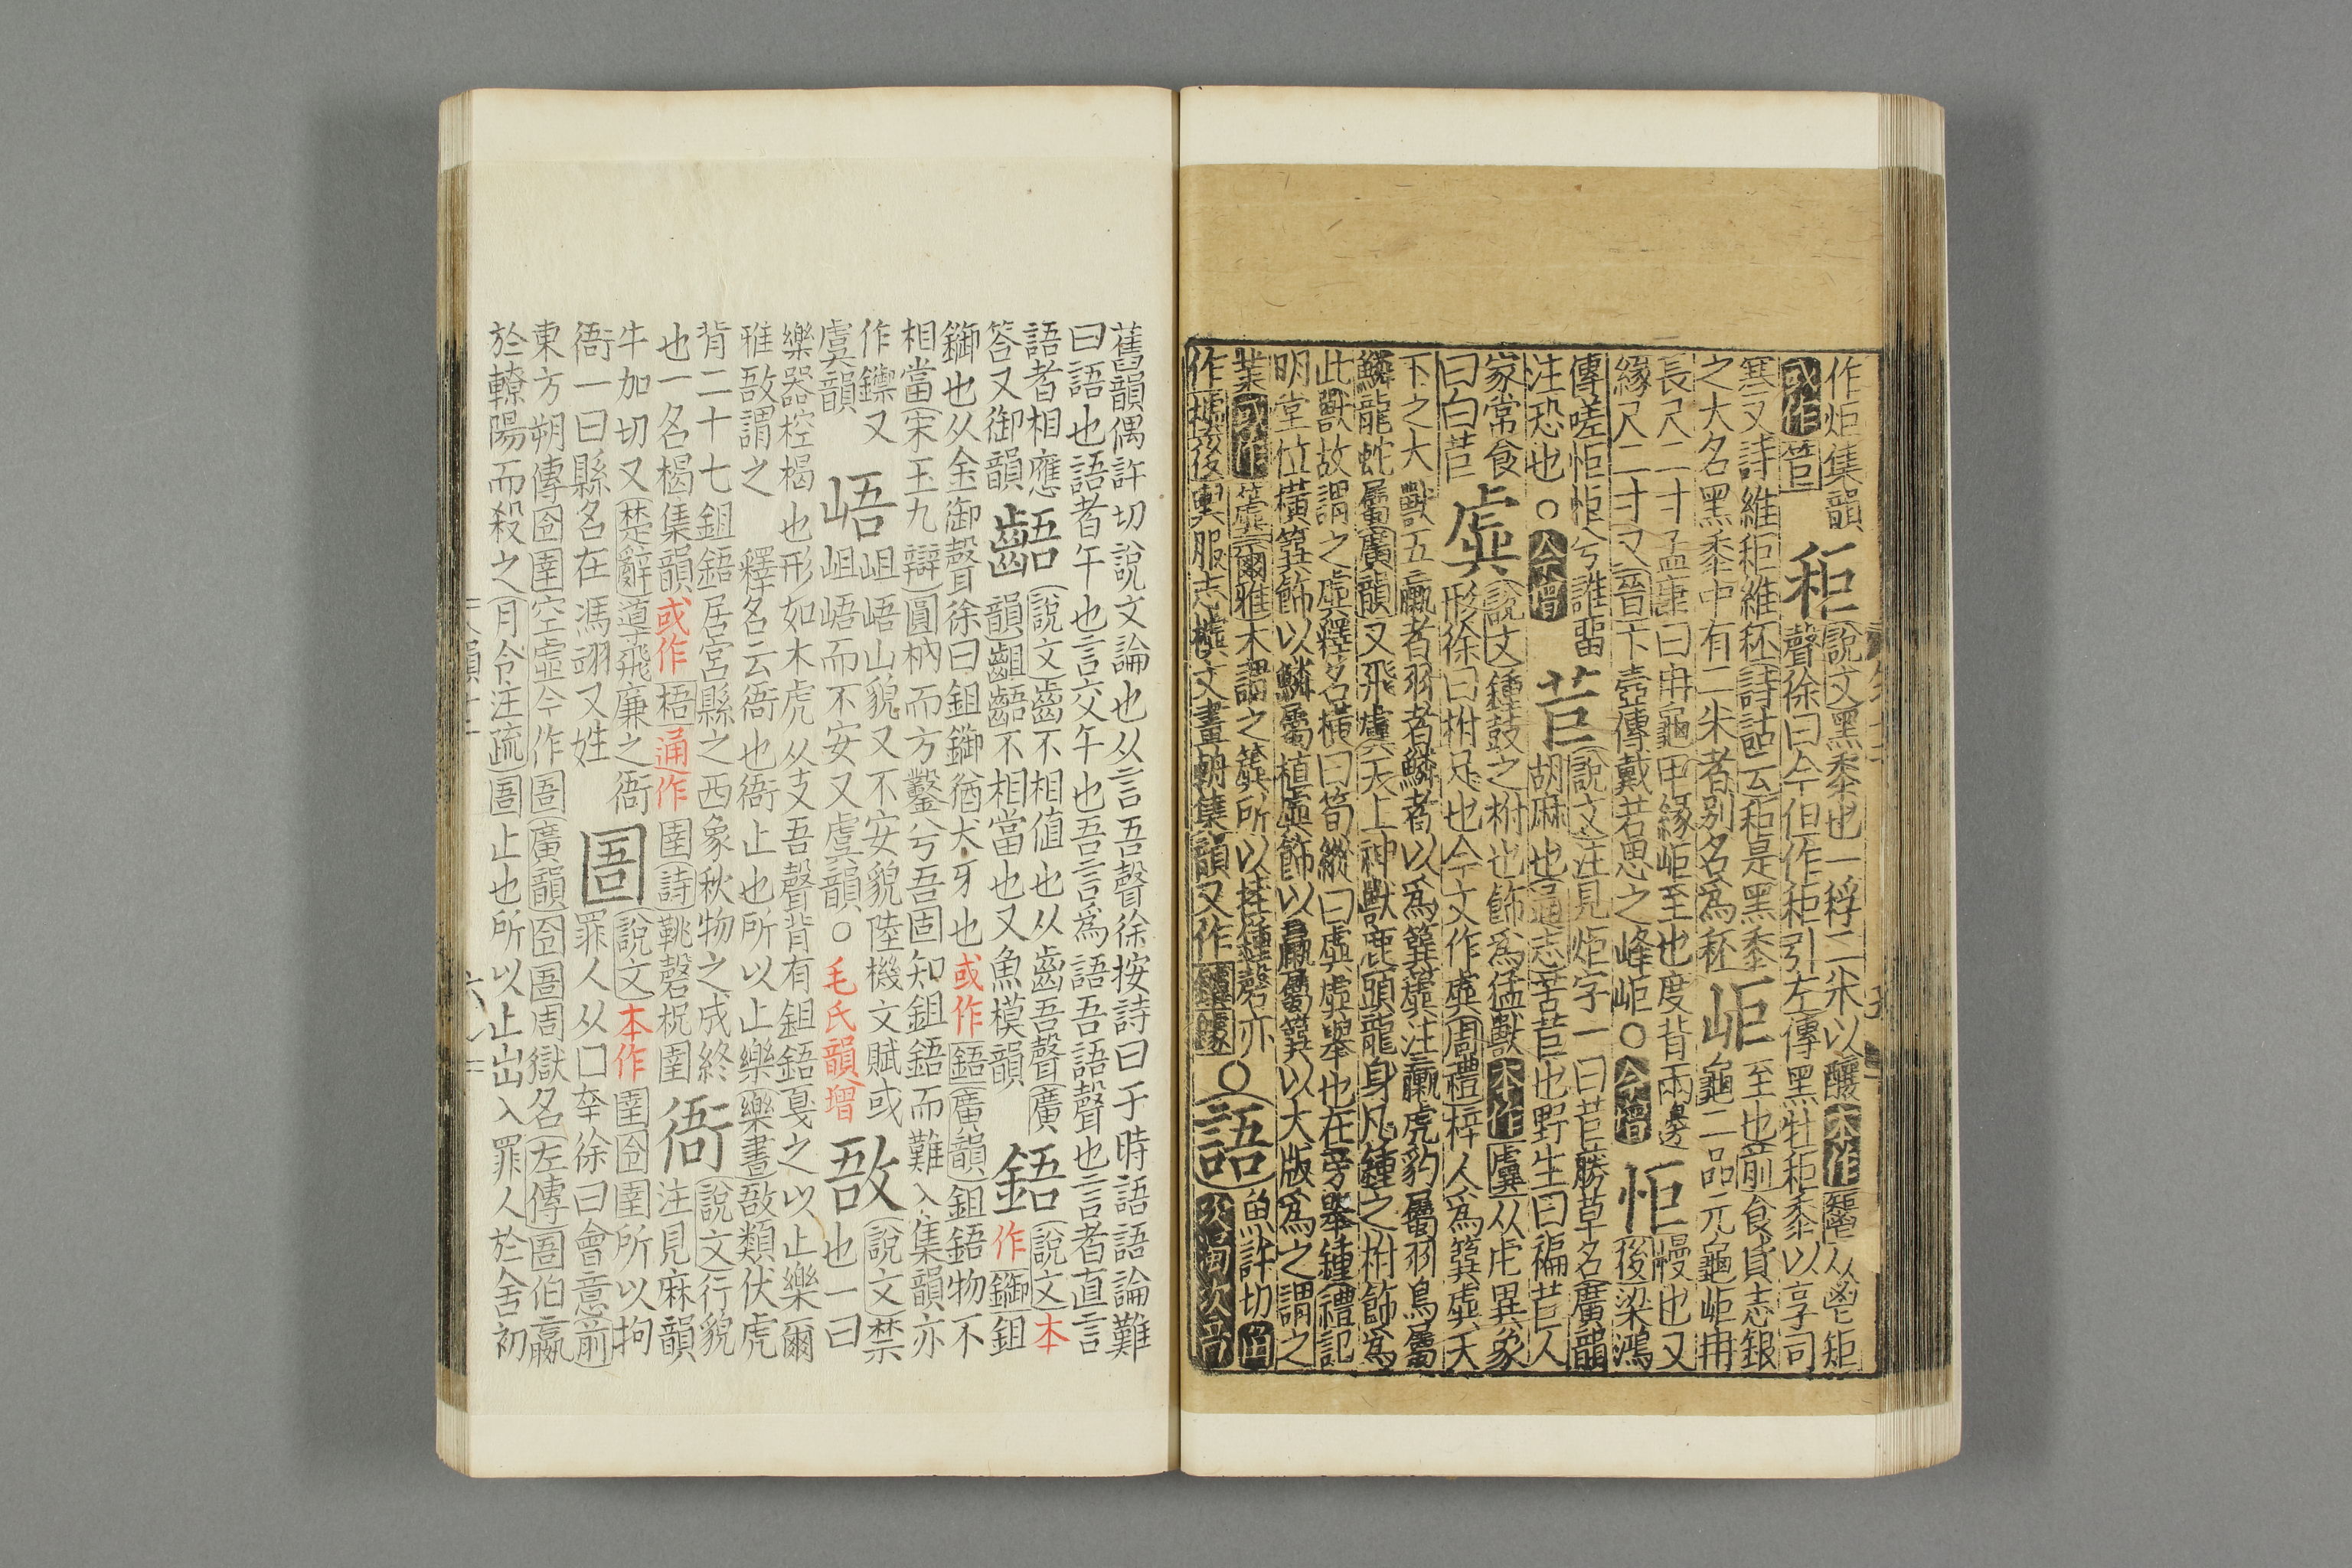 作炬集韻 秬 說文黑黍也一稃二米以釀本作从鬯矩
或作 聲徐曰今但作秬引左傳黑牡秬黍以享司
寒又詩維秬維秠詩詁云秬是黑黍 岠 至也前食貨志銀
之大名黑黍中有二米者別名為秠 龜二品元龜岠冉
長尺二寸孟康曰冉龜甲緣岠至也度背兩邊 怚 慢也又
緣尺二寸又晉卞壼傳戴若思之峰岠○今增 後梁鴻
傳嗟怚怚兮誰留 苣 說文注見炬字一曰苣藤草名廣韻
注恐也○今增 胡麻也通志苦苣也野生曰褊苣人
家常食 虡 說文鍾鼓之柎也飾為猛獸本作虡从虍異象
曰白苣 形徐曰柎足也今文作虡周禮梓人為筍虡天
下之大獸五臝者羽者鱗者以為筍虡注臝虎豹屬羽鳥屬
鱗龍蛇屬廣韻又飛虡天上神獸鹿頭龍身凡鍾之柎飾為
此獸故謂之虡釋名橫曰筍縱曰虡虡舉也在旁舉鍾禮記
明堂位橫筍飾以鱗屬植虡飾以臝屬筍以大版為之謂之
業或作 爾雅木謂之虡所以挂鍾磬亦○語 魚許切
作 後輿服志 文畫輈集韻又作
舊韻偶許切說文論也从言吾聲徐按詩曰于時語語論難
曰語也語者午也言交午也吾言為語吾語聲也言者直言
語者相應 齬 說文齒不相值也从齒吾聲廣 鋙 說文本
答又御韻 韻齟齬不相當也又魚模韻 作鋤鉏
鋤也从金御聲徐曰鉏鋤猶犬牙也或作鋙廣韻鉏鋙物不
相當宋玉九辯圓枘而方鑿兮吾固知鉏鋙而難入集韻亦
作鐭又 峿 岨峿山貌又不安貌陸機文賦或 敔 說文禁
虞韻 岨峿而不安又虞韻○毛氏韻增 也一曰
樂器椌楬也形如木虎从攴吾聲背有鉏鋙戛之以止樂爾
雅敔謂之 釋名云衙也衙止也所以止樂樂書敔類伏虎
背二十七鉏鋙居宮縣之西象秋物之成終 衙 說文行貌
也一名楬集韻或作梧通作圉詩鞉磬柷圉 注見麻韻
牛加切又楚辭導飛廉之衙 圄 說文本作圉囹圉所以拘
衙一曰縣名在馮翊又姓 罪人从囗㚔徐曰會意前
東方朔傳囹圉空虛今作圄廣韻囹圄周獄名左傳圄伯嬴
於轑陽而殺之月令注疏圄止也所以止出入罪人於舍初